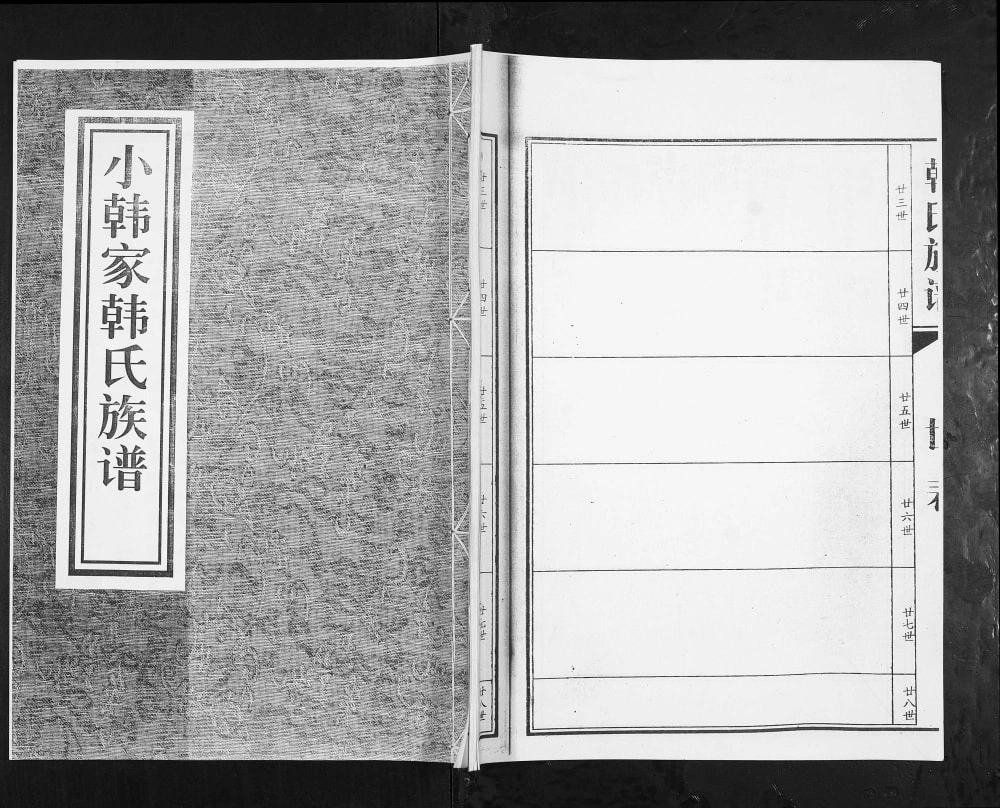 小韩家韩氏族谱
韩氏族谱
廿三世
廿四世
廿五世
廿六世
廿七世
廿八世
廿三世
廿四世
廿五世
廿六世
廿七世
廿八世